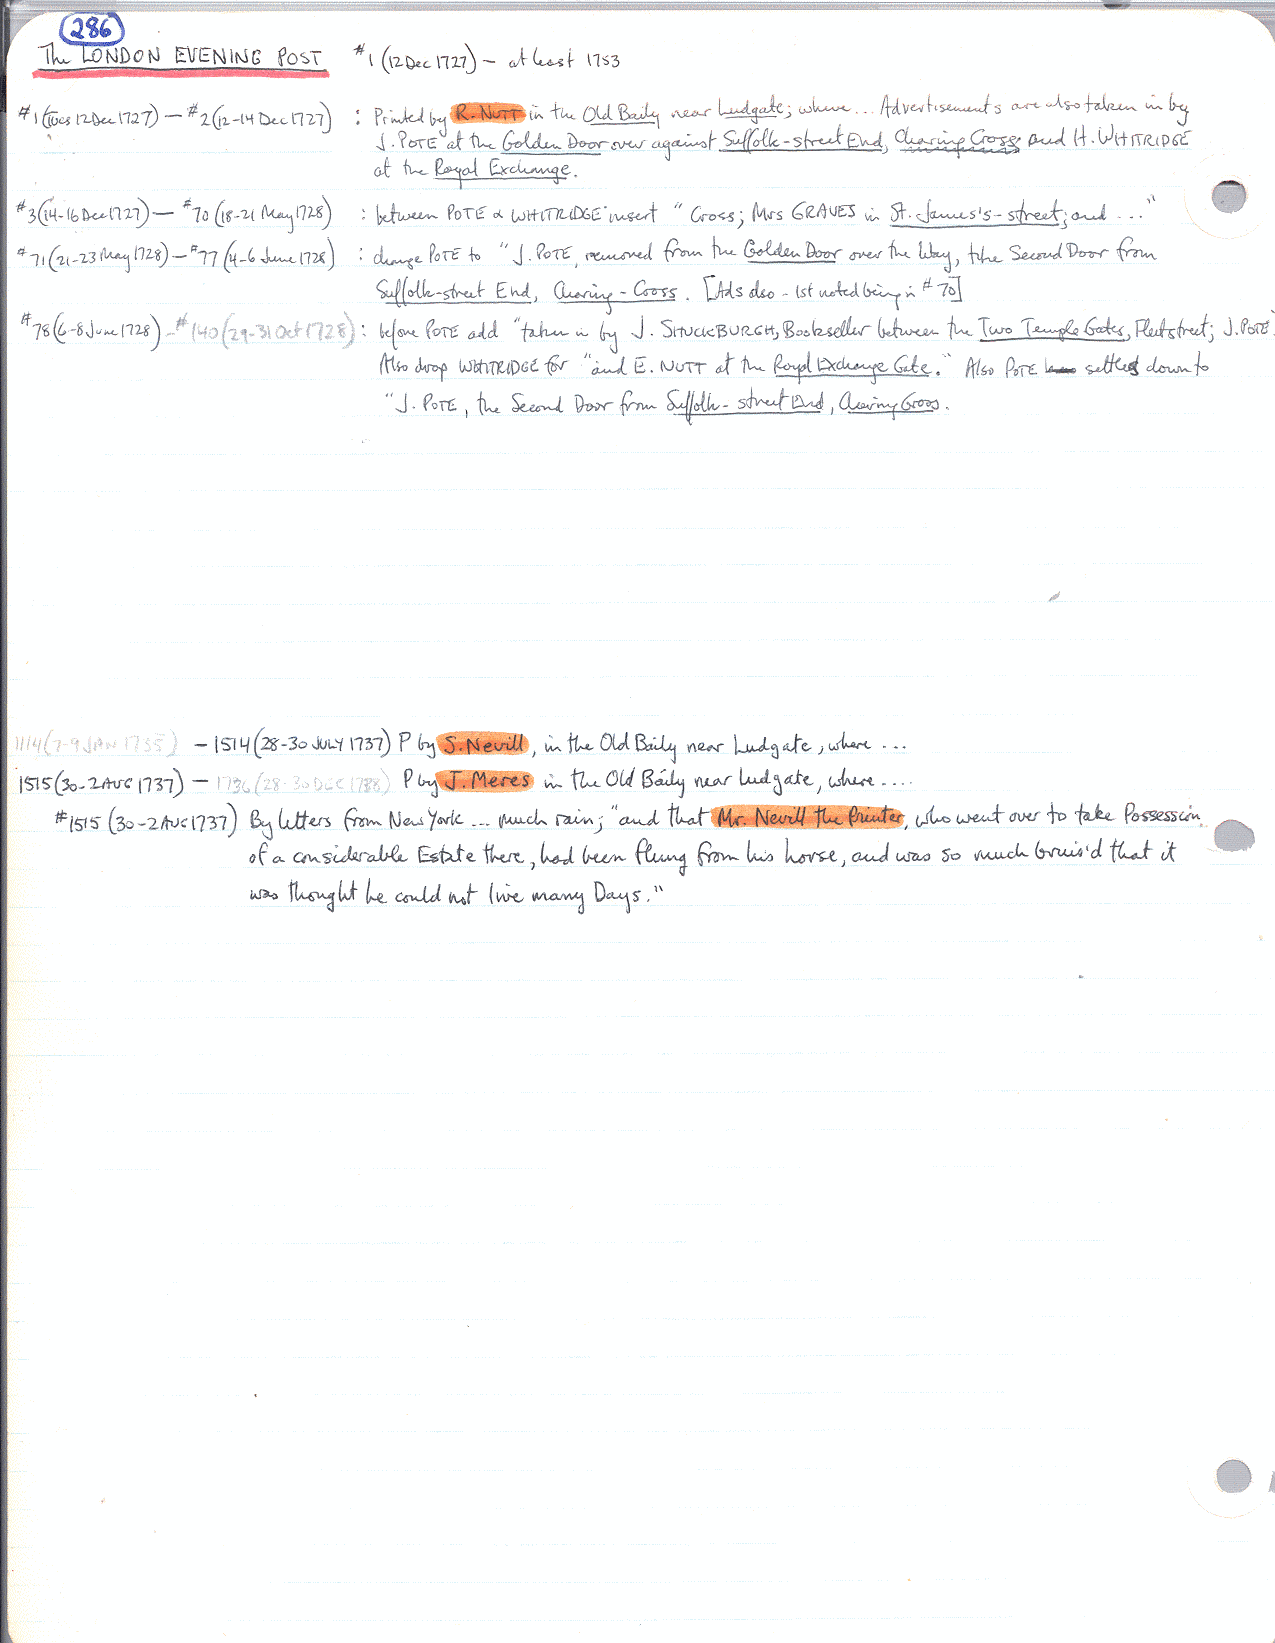 286
The LONDON EVENING POST #1 (12 Dec 1727) – at least 1753
#1 (Tues 12 Dec 1727) – #2 (12-14 Dec 1727) : Printed by R. NUTT in the Old Baily near Ludgate; where ... Advertisements are also taken in by
J. POTE at the Golden Door over against Suffolk-street End, Charing Cross; and H. WHITRIDGE
at the Royal Exchange.
#3 (14-16 Dec 1727) – #70 (18-21 May 1728) : between POTE & WHITRIDGE insert " Cross; Mrs GRAVES in St. James's-street; and ..."
#71 (21-23 May 1728) – #77 (4-6 June 1728) : change POTE to "J. POTE, removed from the Golden Door over the Way, to the Second Door from
Suffolk-street End, Charing-Cross. [Ads also - 1st noted being in #70]
#78 (6-8 June 1728) – #140 (29-31 Oct 1728) : before POTE add "taken in by J. SHUCKBURGH, Bookseller between the Two Temple Gates, Fleetstreet; J. POTE
Also drop WHITRIDGE for "and E. NUTT at the Royal Exchange Gate." Also POTE settles down to
"J. POTE, the Second Door from Suffolk-street End, Charing Cross.
1114 (7-9 JAN 1735) – 1514 (28-30 JULY 1737) P by S. Nevill, in the Old Baily near Ludgate, where ...
1515 (30-2 AUG 1737) – 1736 (28-30 DEC 1738) P by J. Meres in the Old Baily near Ludgate, where ....
#1515 (30-2 AUG 1737) By letters from New York ... much rain; "and that Mr. Nevill the Printer, who went over to take Possession
of a considerable Estate there, had been flung from his horse, and was so much bruis'd that it
was thought he could not live many Days."